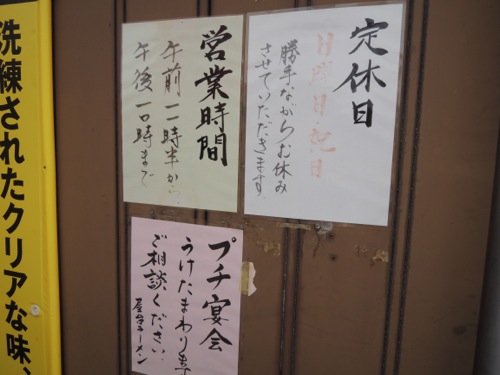 定休日
日曜日祝日
勝手ながらお休み
させていただきます
営業時間
午前一一時半から
午後一〇時まで
プチ宴会
うけたまわります
ご相談ください
屋台ラーメン
洗練されたクリアな味、